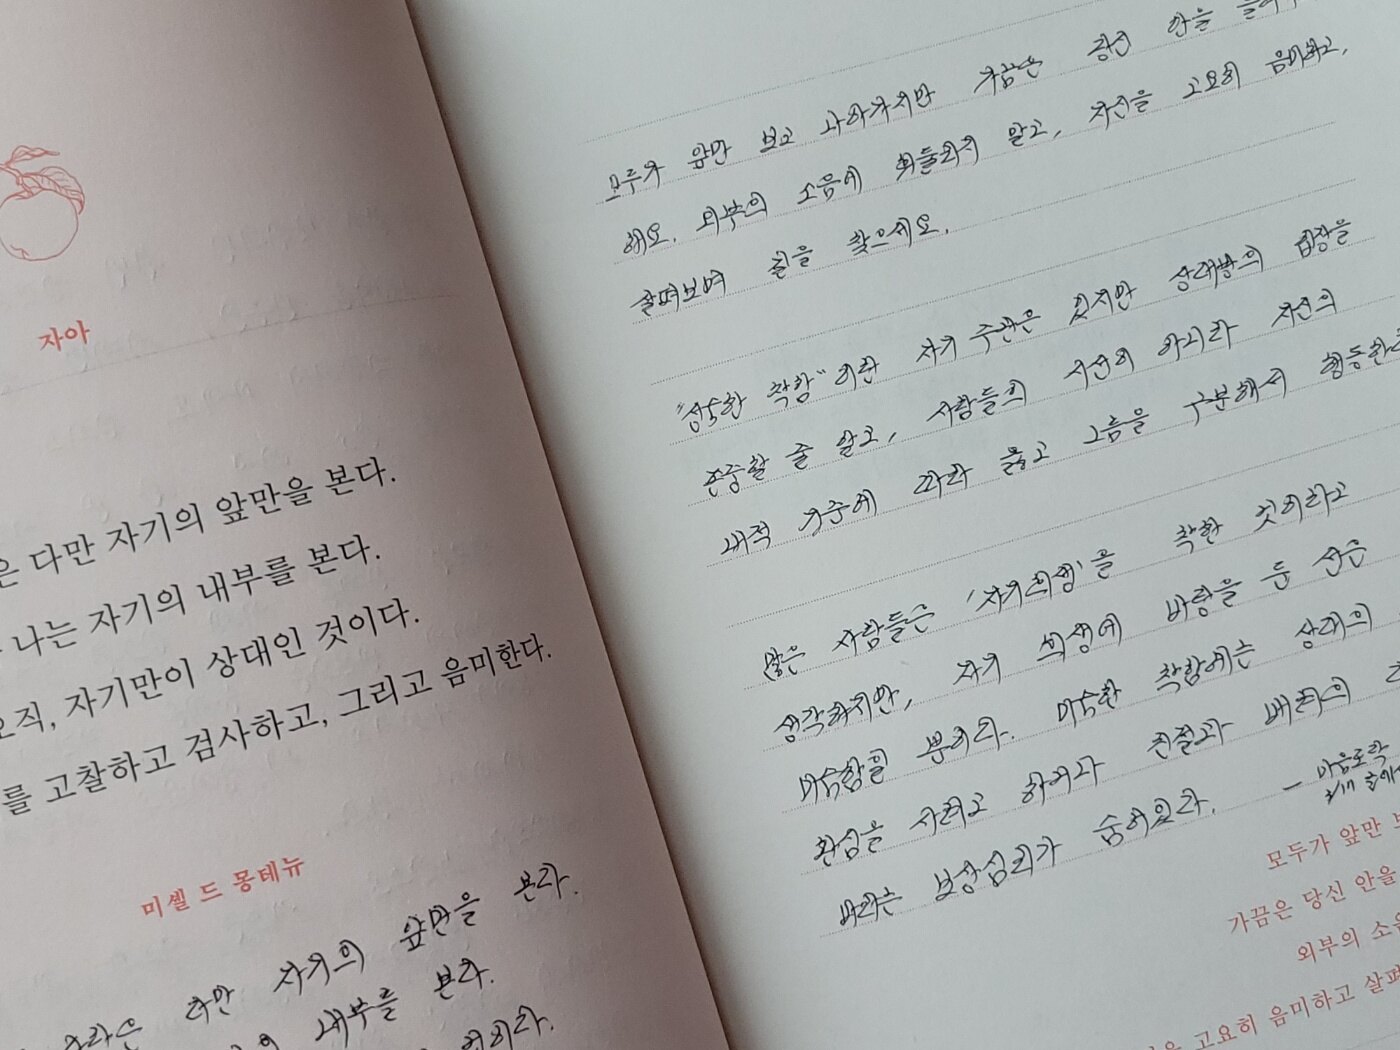 자아
은 다만 자기의 앞만을 본다.
나는 자기의 내부를 본다.
오직, 자기만이 상대인 것이다.
를 고찰하고 검사하고, 그리고 음미한다.
미셸 드 몽테뉴
다만 자기의 앞만을 본다.
내부를 본다.
모두가 앞만 보고 나아가지만 가끔은 당신 안을
해요. 외부의 소음에 휘둘리지 말고, 자신을 고요히 음미하고,
살펴보며 길을 찾으세요.
"성숙한 착함"이란 자기 주관은 있지만 상대방의 입장을
존중할 줄 알고, 사람들의 시선이 아니라 자신의
내적 기준에 따라 옳고 그름을 구분해서 행동한다
많은 사람들은 '자기희생'을 착한 것이라고
생각하지만, 자기 희생에 바탕을 둔 선은
미숙함일 뿐이다. 미숙한 착함에는 상대의
환심을 사려고 하거나 친절과 배려의
바라는 보상심리가 숨어있다. - 마음오락
중에서
모두가 앞만
가끔은 당신 안을
외부의 소
고요히 음미하고 살펴